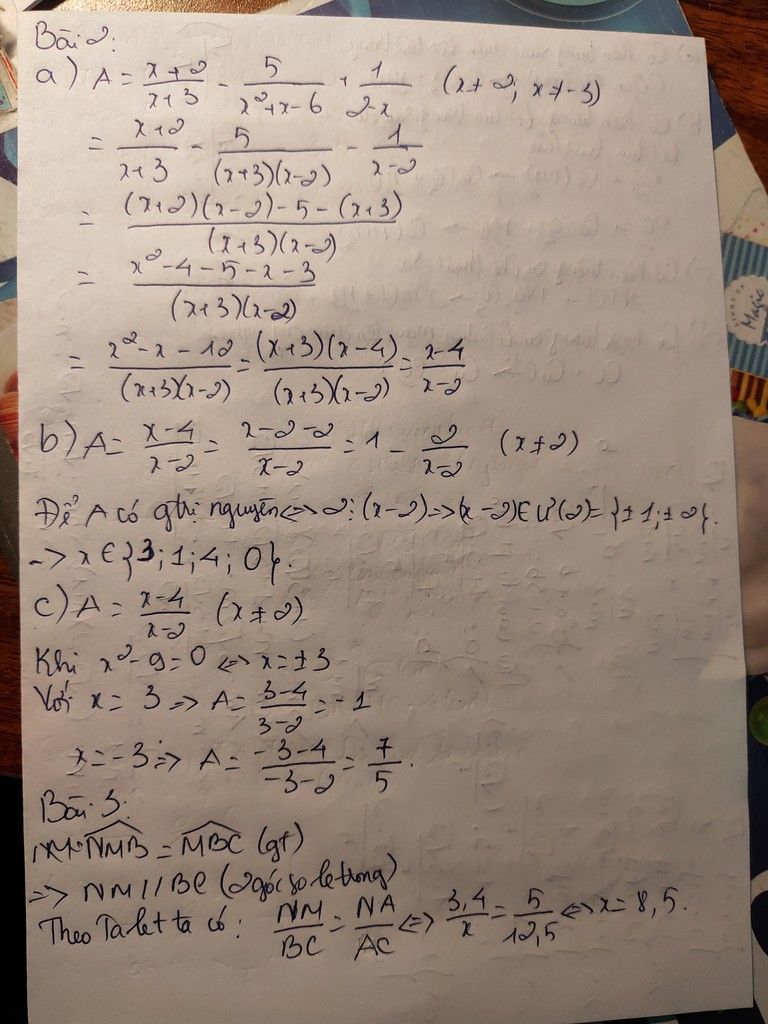 Bài 2:
a) A = \frac{x+2}{x+3} - \frac{5}{x²+x-6} + \frac{1}{2-x} (x ≠ 2; x ≠ -3)
= \frac{x+2}{x+3} - \frac{5}{(x+3)(x-2)} - \frac{1}{x-2}
= \frac{(x+2)(x-2)-5-(x+3)}{(x+3)(x-2)}
= \frac{x²-4-5-x-3}{(x+3)(x-2)}
= \frac{x²-x-12}{(x+3)(x-2)} = \frac{(x+3)(x-4)}{(x+3)(x-2)} = \frac{x-4}{x-2}
b) A = \frac{x-4}{x-2} = \frac{x-2-2}{x-2} = 1 - \frac{2}{x-2} (x ≠ 2)
Để A có gtrị nguyên <=> 2 ⋮ (x-2) => (x-2) ∈ Ư(2) = {±1; ±2}.
-> x ∈ {3; 1; 4; 0}.
c) A = \frac{x-4}{x-2} (x ≠ 2)
Khi x² - 9 = 0 <=> x = ±3
Với x = 3 => A = \frac{3-4}{3-2} = -1
x = -3 => A = \frac{-3-4}{-3-2} = \frac{7}{5}.
Bài 3:
\widehat{NMB} = \widehat{MBC} (gt)
=> NM // BC (2 góc so le trong)
Theo Ta let ta có: \frac{NM}{BC} = \frac{NA}{AC} <=> \frac{3,4}{x} = \frac{5}{12,5} <=> x = 8,5.
Magic